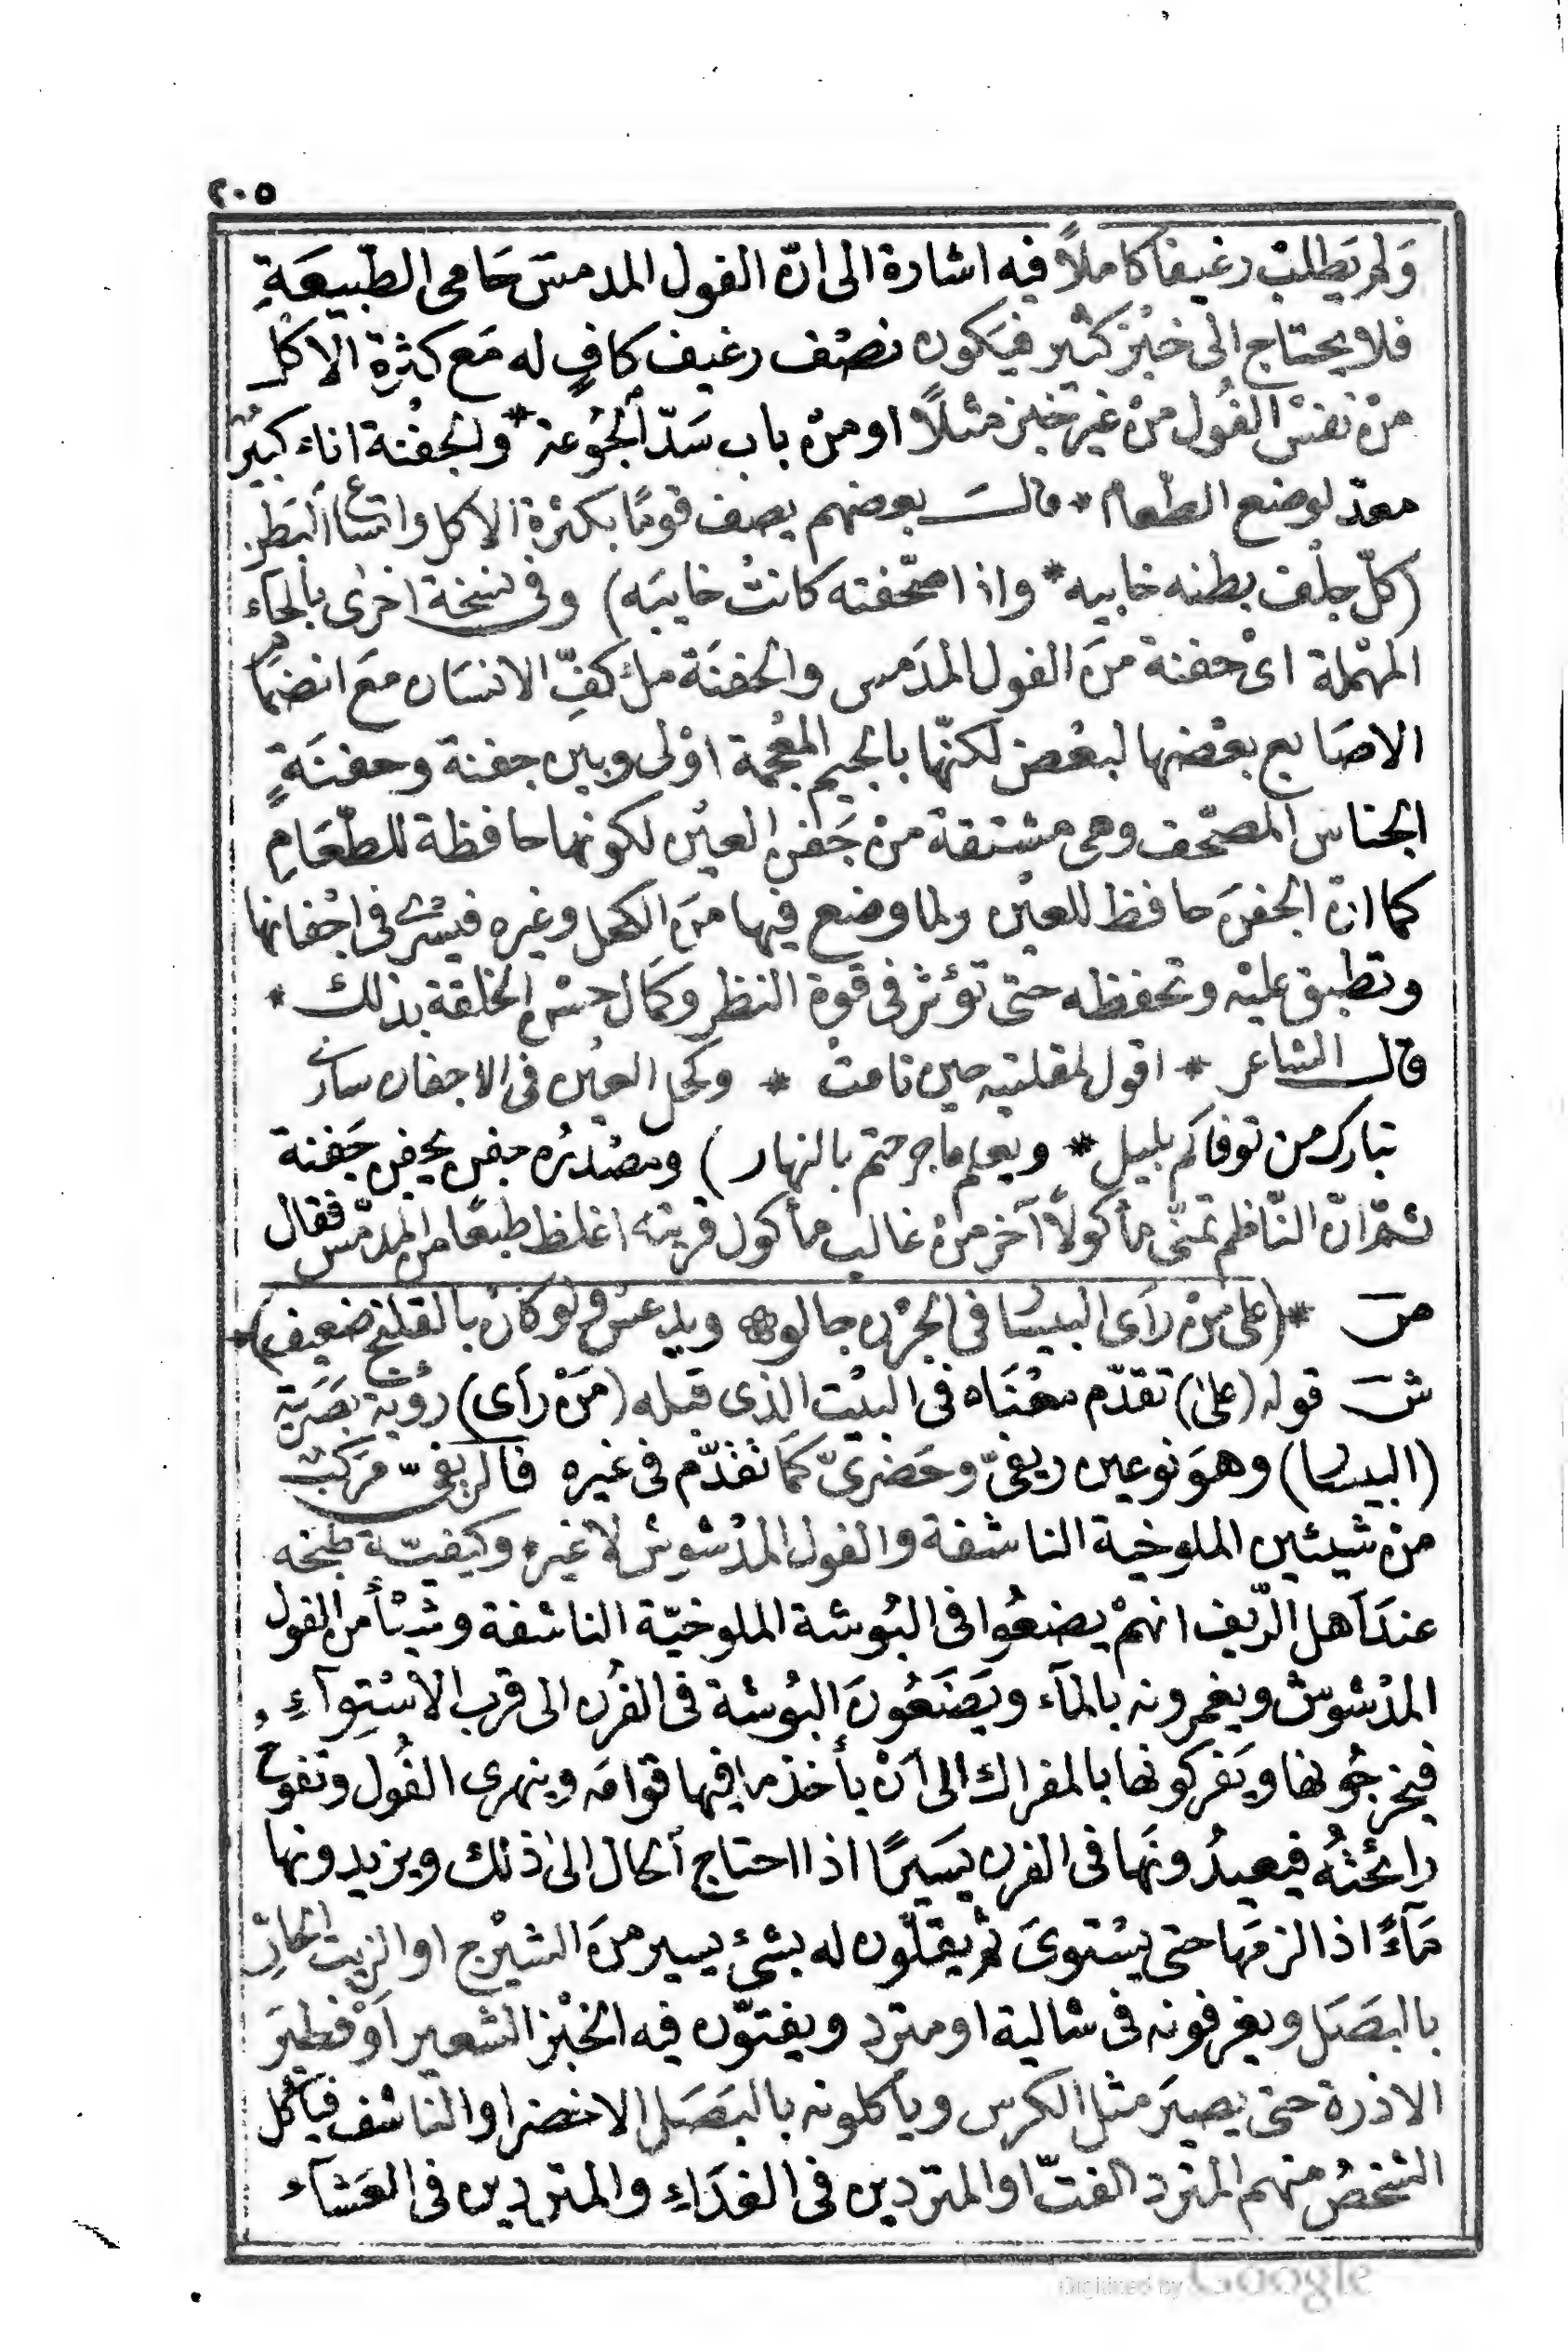 ٢٠٥
وَلم يَطلبْ رغيفاً كاملاً فيه اشارة الى انّ الفول المدمسَ حَامى الطّبيعَةِ
فلا يحتاج الى خبْز كثير فيَكون نصْف رغيف كافٍ له مَع كثرة الاكل
منْ نفسْ الفُول منْ غيرْ خبز مثلاً او منْ باب سَدّ الجُوعة * والجفْنة اناء كبيرٌ
معدّ لوضع الطّعام * قالــَ بعضهم يصف قومًا بكثرْة الاكل واتساع البَطن
(كلّ جلْف بطنه خابيه * واذا صحّفته كانتْ خايبَه) وفى نسْخة اخرٰى بالحاء
المهْملة اىْ حفنة منَ الفول المدَمس والحفنَة ملْ كفّ الانسَان معَ انضمَام
الاصَابع بعْضها لبعْض لكنّها بالجيم المعْجمة اوْلى وبين جفنة وحفنَةٍ
الجناس المصحّف وهى مشتقة منْ جَفن العيْن لكونها حافظة للطّعَامِ
كما انّ الجفنَ حافظ للعيْن ولما وضع فيها منَ الكحل وغيره فيسْرى فى اجْفانها
وتطبق عليْه وتحفظه حتى تؤثر فى قوة النظر وكمَال حسْن الخلقة بذلك *
قالـــ الشاعر * اقول لمقلتيه حين نامتْ * وكحل العيْن فى الاجفان سارى
تبارك من توفاكم بليل * ويعلم ما جرحتم بالنهار) ومصْدرُه جفن يجفن جَفنة
ثمّ انّ النّاظم تمنّى مأكولاً آخر منْ غالب مأكول قريته اغلظ طبعًا من المدمّس فقال
صَ * (على منْ رأَى البيسَار فى الجرْن جالو ويلدعسْ ولو كانْ بالقلنج ضعيف) *
شَ قوله (على) تقدّم معْنَاه فى البيْت الذى قبله (منْ رأَى) رؤية بصَريّة
(البيسار) وهوَ نوعين ريفىّ وحَضرىّ كمَا تقدّم فى غيره فالريفىّ مركبْ
منْ شيئين الملوخية الناشفة والفول المدْشوش لا غيره وكيفيّة طبخه
عندَ اهل الرّيف انهمْ يضعُوا فى البُوشة الملوخيّة الناشفة وشيْأً من الفول
المدْشوش ويغمرونه بالمآء ويَضَعُونَ البُوشة فى الفُرن الى قرب الاسْتِوآءِ
فيخرجُونها ويَفركونها بالمفراك الى أنْ يأخذ ما فيها قوامَه وينهرى الفُول وتفوحُ
رائحْتهُ فيعيدُونَها فى الفرن يسَيرًا اذا احتاج الحال الى ذلك ويزيدونها
مَآءً اذا لزمَها حتى يسْتوىَ ثمْ يقلّون له بشئ يسير منَ الشيْرج او الزيت الحارّ
بالبصَل ويغرفونه فى شالية او مترد ويفتّون فيه الخبْز الشعير اَوْ فطيرَ
الاذرة حتى يصيرَ مثل الكرس ويأكلونه بالبَصَل الاخضر او الناشف فيأكل
الشخصُ منهم المترد الفتّ او المتردين فى الغدَاءِ والمتردين فى العَشآء
Digitized by Google